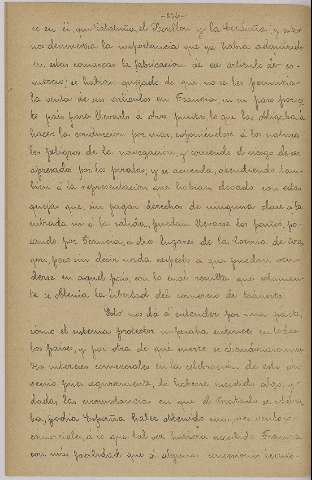 se en él que Cataluña, el Rosellon y la Cerdaña, y esto
nos demuestra la importancia que ya habia adquirido
en estas comarcas la fabricacion de este articulo de co-
mercio; se habian quejado de que no se les permitia
la venta de sus articulos en Francia ni su paso por es-
te país para llevarlo a otros puntos lo que les obligaba a
hacer la conduccion por mar, exponiendose á los natura-
les peligros de la navegacion y corriendo el riesgo de ser
apresado por los piratas; y se acuerda, atendiendo tam-
bien á la representacion que habian elevado con estas
quejas que, sin pagar derechos de ninguna clase a la
entrada ni a la salida, puedan llevarse los paños, pa-
sando por Francia, a otro lugares de la Corona de Ara-
gon, pero sin decir nada respecto a que puedan ven-
derse en aquel país, con lo cual resulta que solamen-
te se obtenia la libertad del comercio de transito.
Esto nos da á entender por una parte,
cómo el sistema protector imperaba entonces en todos
los países, y por otra de qué suerte se
intereses comerciales en la celebracion de este
pues seguramente, de haberse insistido algo, y
dada, las circunstancias en que el Tratado se celebra-
ba, podria España haber obtenido mas ventajas
comerciales, a lo que tal vez hubiera accedido Francia
con más facilidad que á algunas concesiones